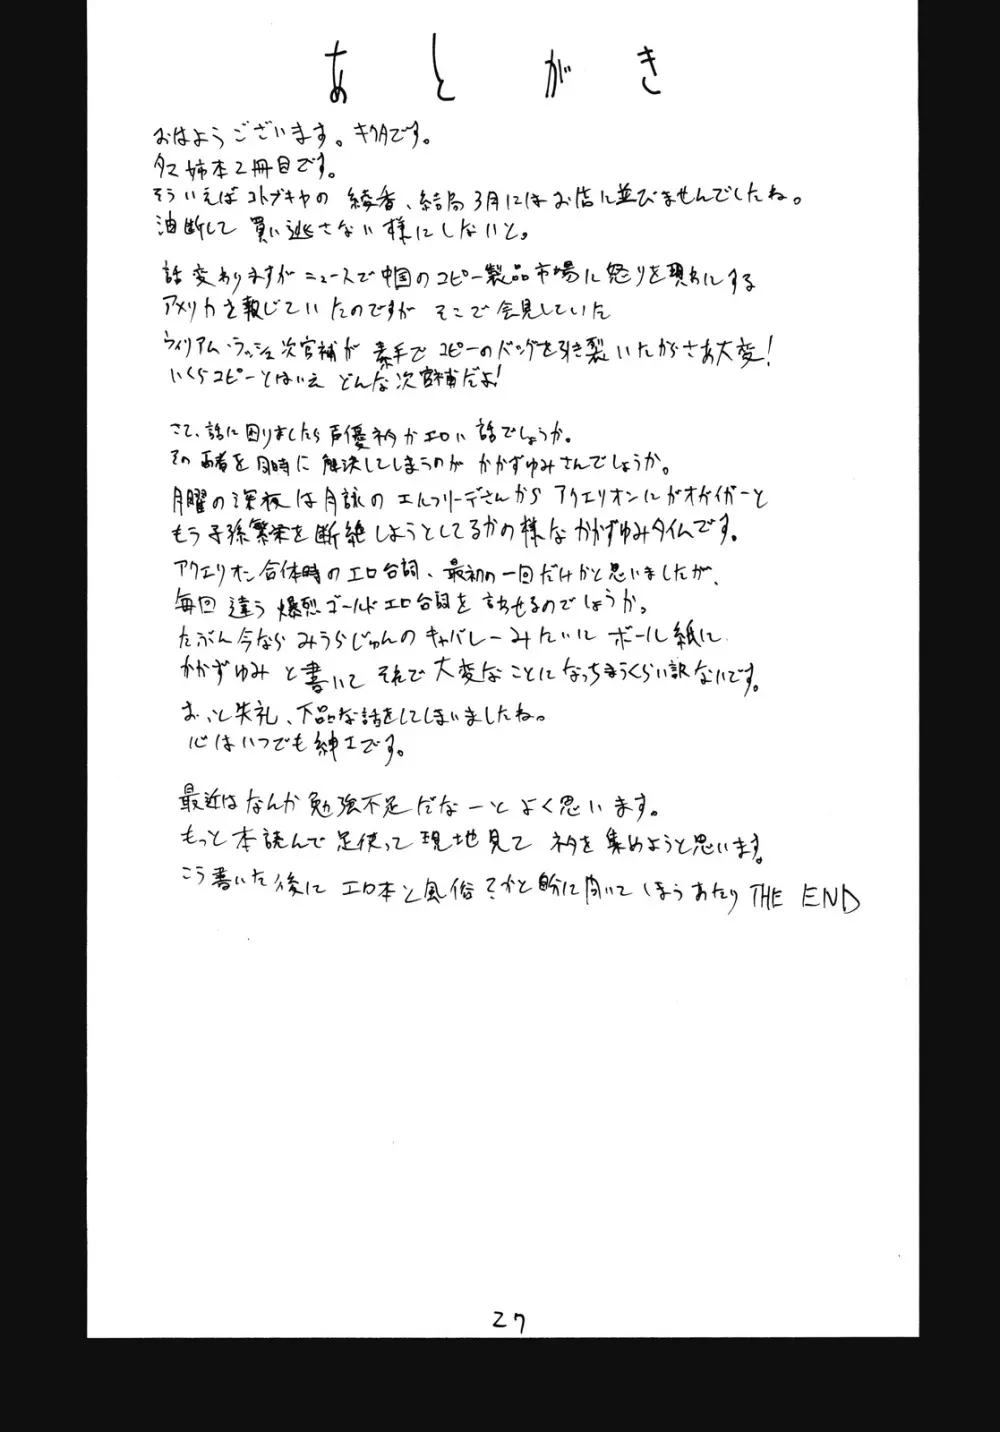 あとがき
おはようございます。キクタです。
タマ姉本2冊目です。
そういえばコトブキヤの 綾香、結局3月にはお店に並びませんでしたね。
油断して買い逃さない様にしないと。
話変わりますがニュースで中国のコピー製品市場に怒りを現わにする
アメリカを報じていたのですが そこで会見していた
ウィリアム・ラッシュ次官補が 素手でコピーのバッグを引き裂いたがさあ大変!
いくらコピーとはいえ どんな次官補だよ!
さて、話に困りましたら声優ネタかエロい話でしょうか。
その両者を同時に解決してしまうのが かかずゆみさんでしょうか。
月曜の深夜は月詠のエルフリーデさんから アクエリオンにガオガイガーと
もう子孫繁栄を断絶しようとしてるかの様なかかずゆみタイムです。
アクエリオン合体時のエロ台詞、最初の一回だけかと思いましたが、
毎回違う爆烈ゴールドエロ台詞を言わせるのでしょうか。
たぶん今なら みうらじゅんのキャバレーみたいに ボール紙に
かかずゆみ と書いて それで大変なことになっちまうくらい訳ないです。
おっと失礼、下品な話をしてしまいましたね。
心はいつでも紳士です。
最近はなんか勉強不足だなーとよく思います。
もっと本読んで足使って現地見て ネタを集めようと思います。
こう書いた後に エロ本と風俗?かと 向いてしまうあたり THE END
27